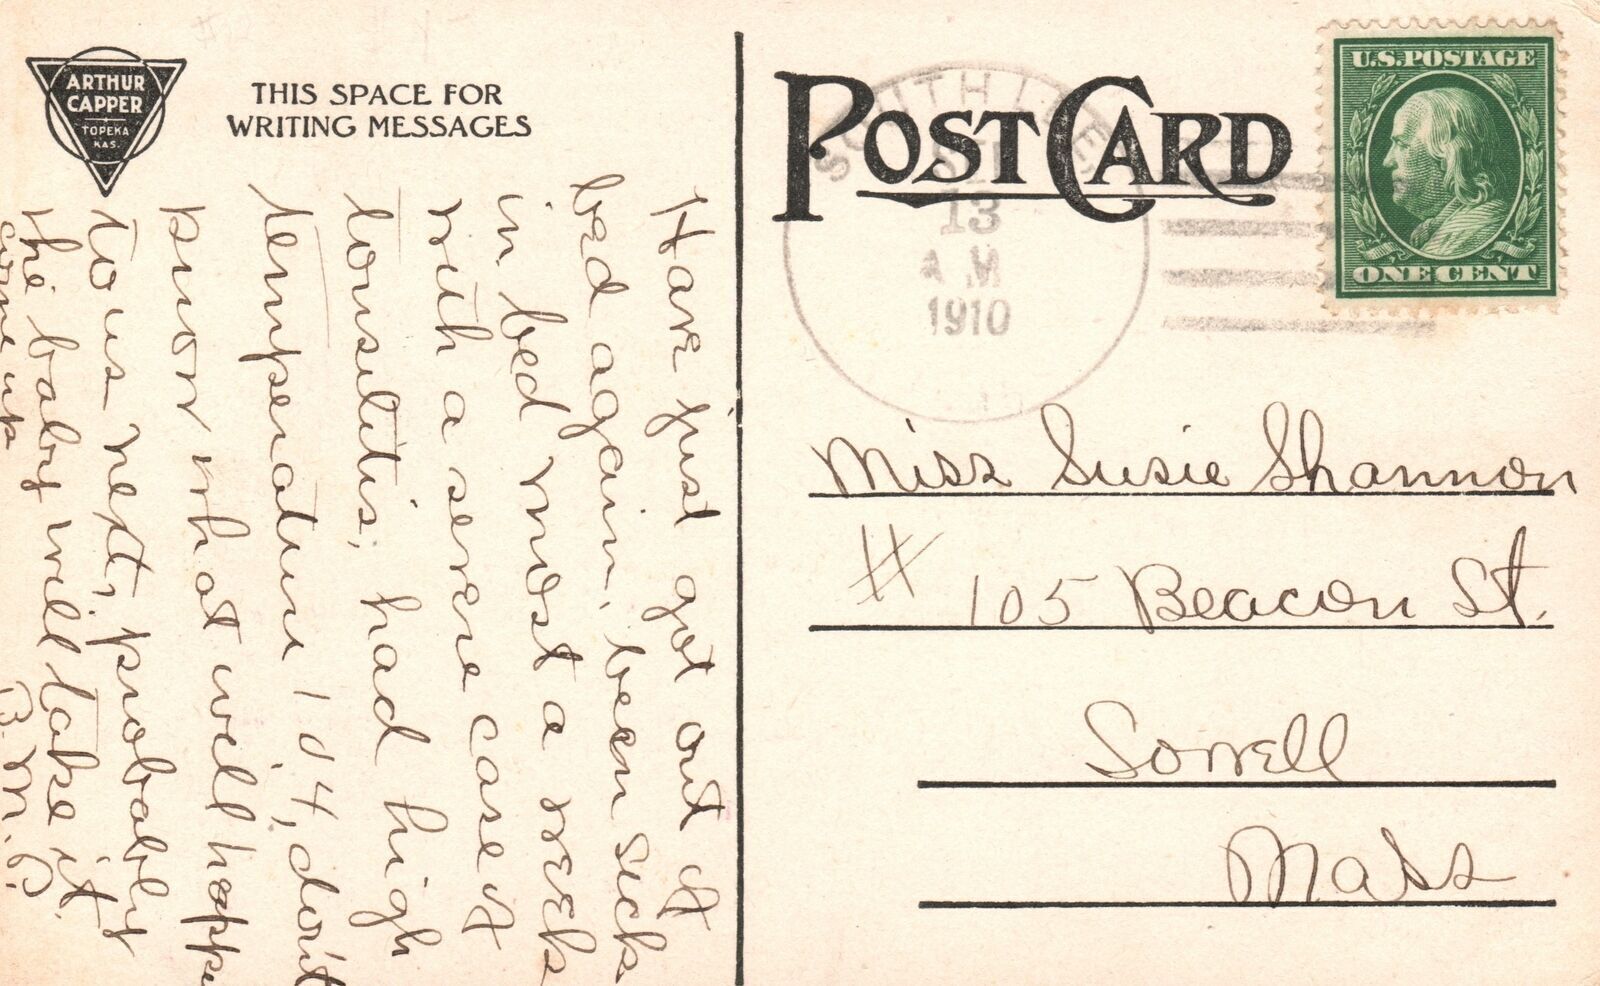 ARTHUR
CAPPER
TOPEKA
KAS.
THIS SPACE FOR
WRITING MESSAGES
Have just got out of
bed again, been sick
in bed most a week
with a severe case of
tonsilitis, had high
temperature 104, don't
know what will happen
to us next, probably
the baby will take it.
come up
B. M. P.
POST CARD
SOUTH LEE
13
AM
1910
U.S.POSTAGE
ONE CENT
Miss Susie Shannon
# 105 Beacon St.
Mass